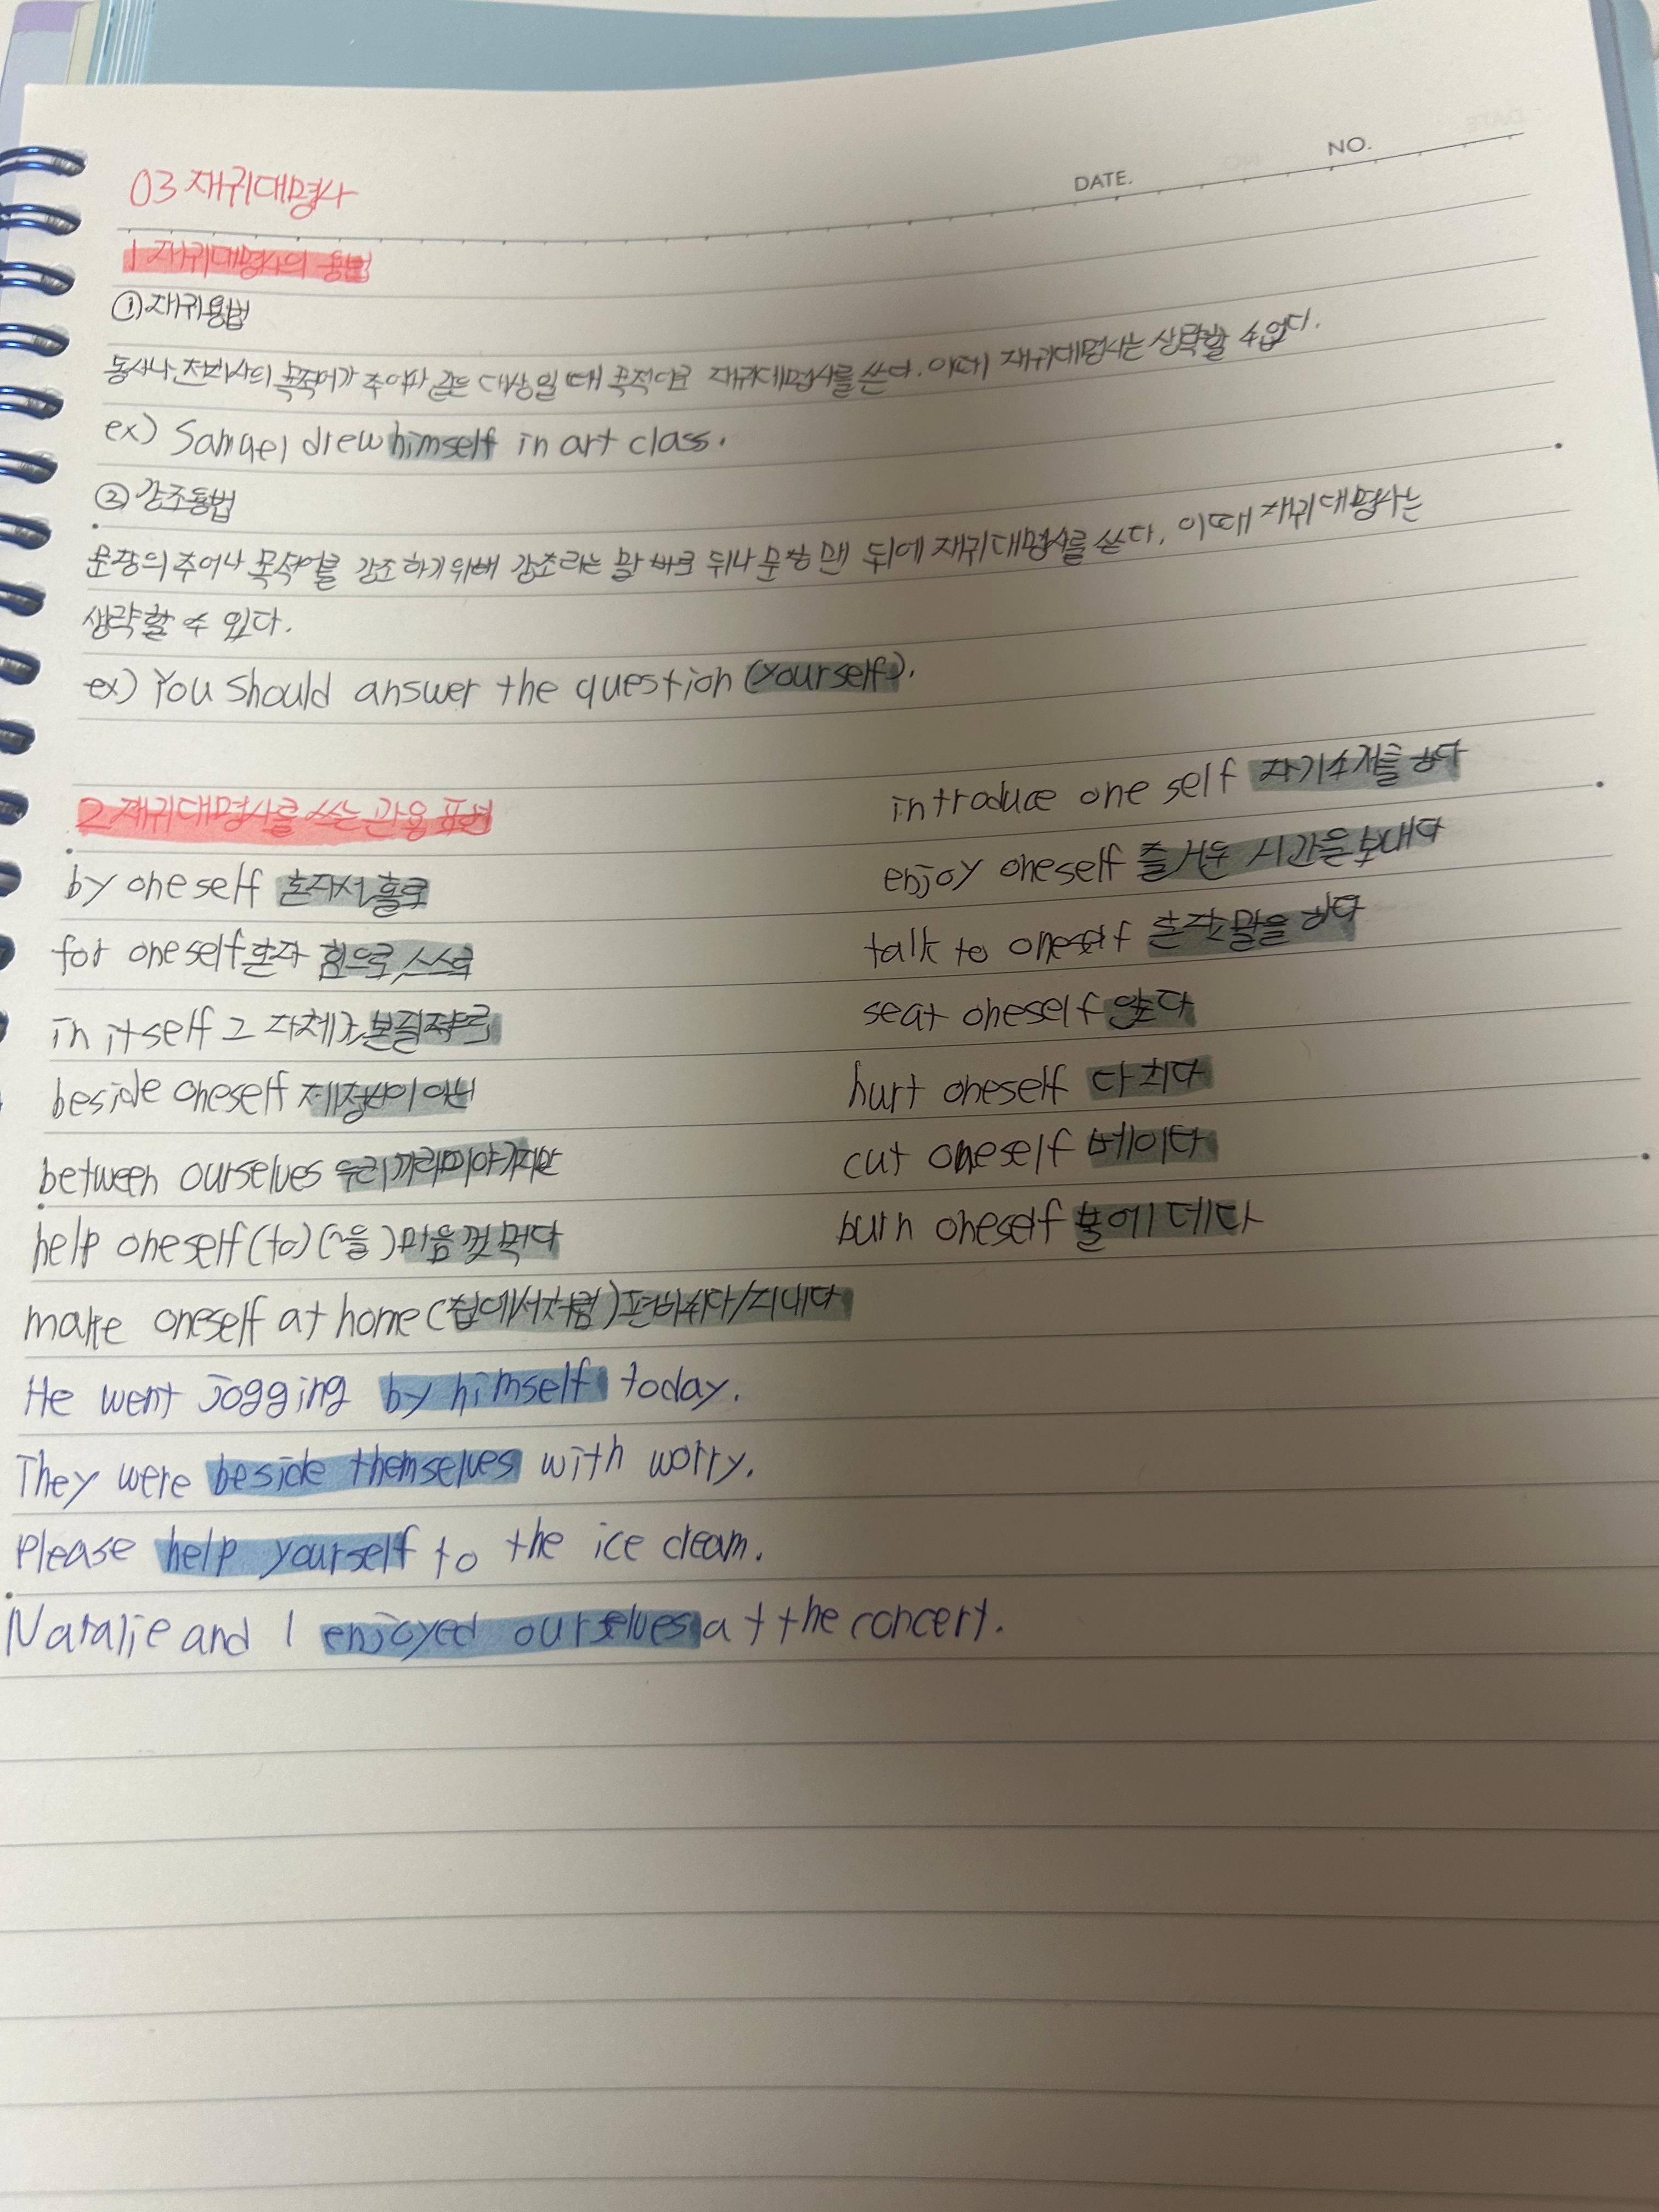 DATE.
NO.
03 재귀대명사
1 재귀대명사의 용법
①재귀용법
동사나 전치사의 목적어가 주어와 같은 대상일 때 목적어로 재귀대명사를 쓴다. 이때 재귀대명사는 생략할 수 없다.
ex) Samuel drew himself in art class.
② 강조용법
문장의 주어나 목적어를 강조하기위해 강조하는 말 바로 뒤나 문장 맨 뒤에 재귀대명사를 쓴다. 이때 재귀대명사는
생략할 수 있다.
ex) You should answer the question (yourself).
2 재귀대명사를 쓰는 관용 표현
by oneself 혼자서, 홀로
for oneself 혼자 힘으로, 스스로
in itself 그 자체가, 본질적으로
beside oneself 제정신이 아닌
between ourselves 우리끼리 이야기지만
help oneself (to) (~을) 마음껏 먹다
make oneself at home (집에서처럼) 편하쉬다/지내다
introduce one self 자기소개를 하다
enjoy oneself 즐거운 시간을 보내다
talk to oneself 혼잣말을 하다
seat oneself 앉다
hurt oneself 다치다
cut oneself 베이다
burn oneself 불에 데다
He went jogging by himself today.
They were beside themselves with worry.
Please help yourself to the ice cream.
Natalie and I enjoyed ourselves at the concert.